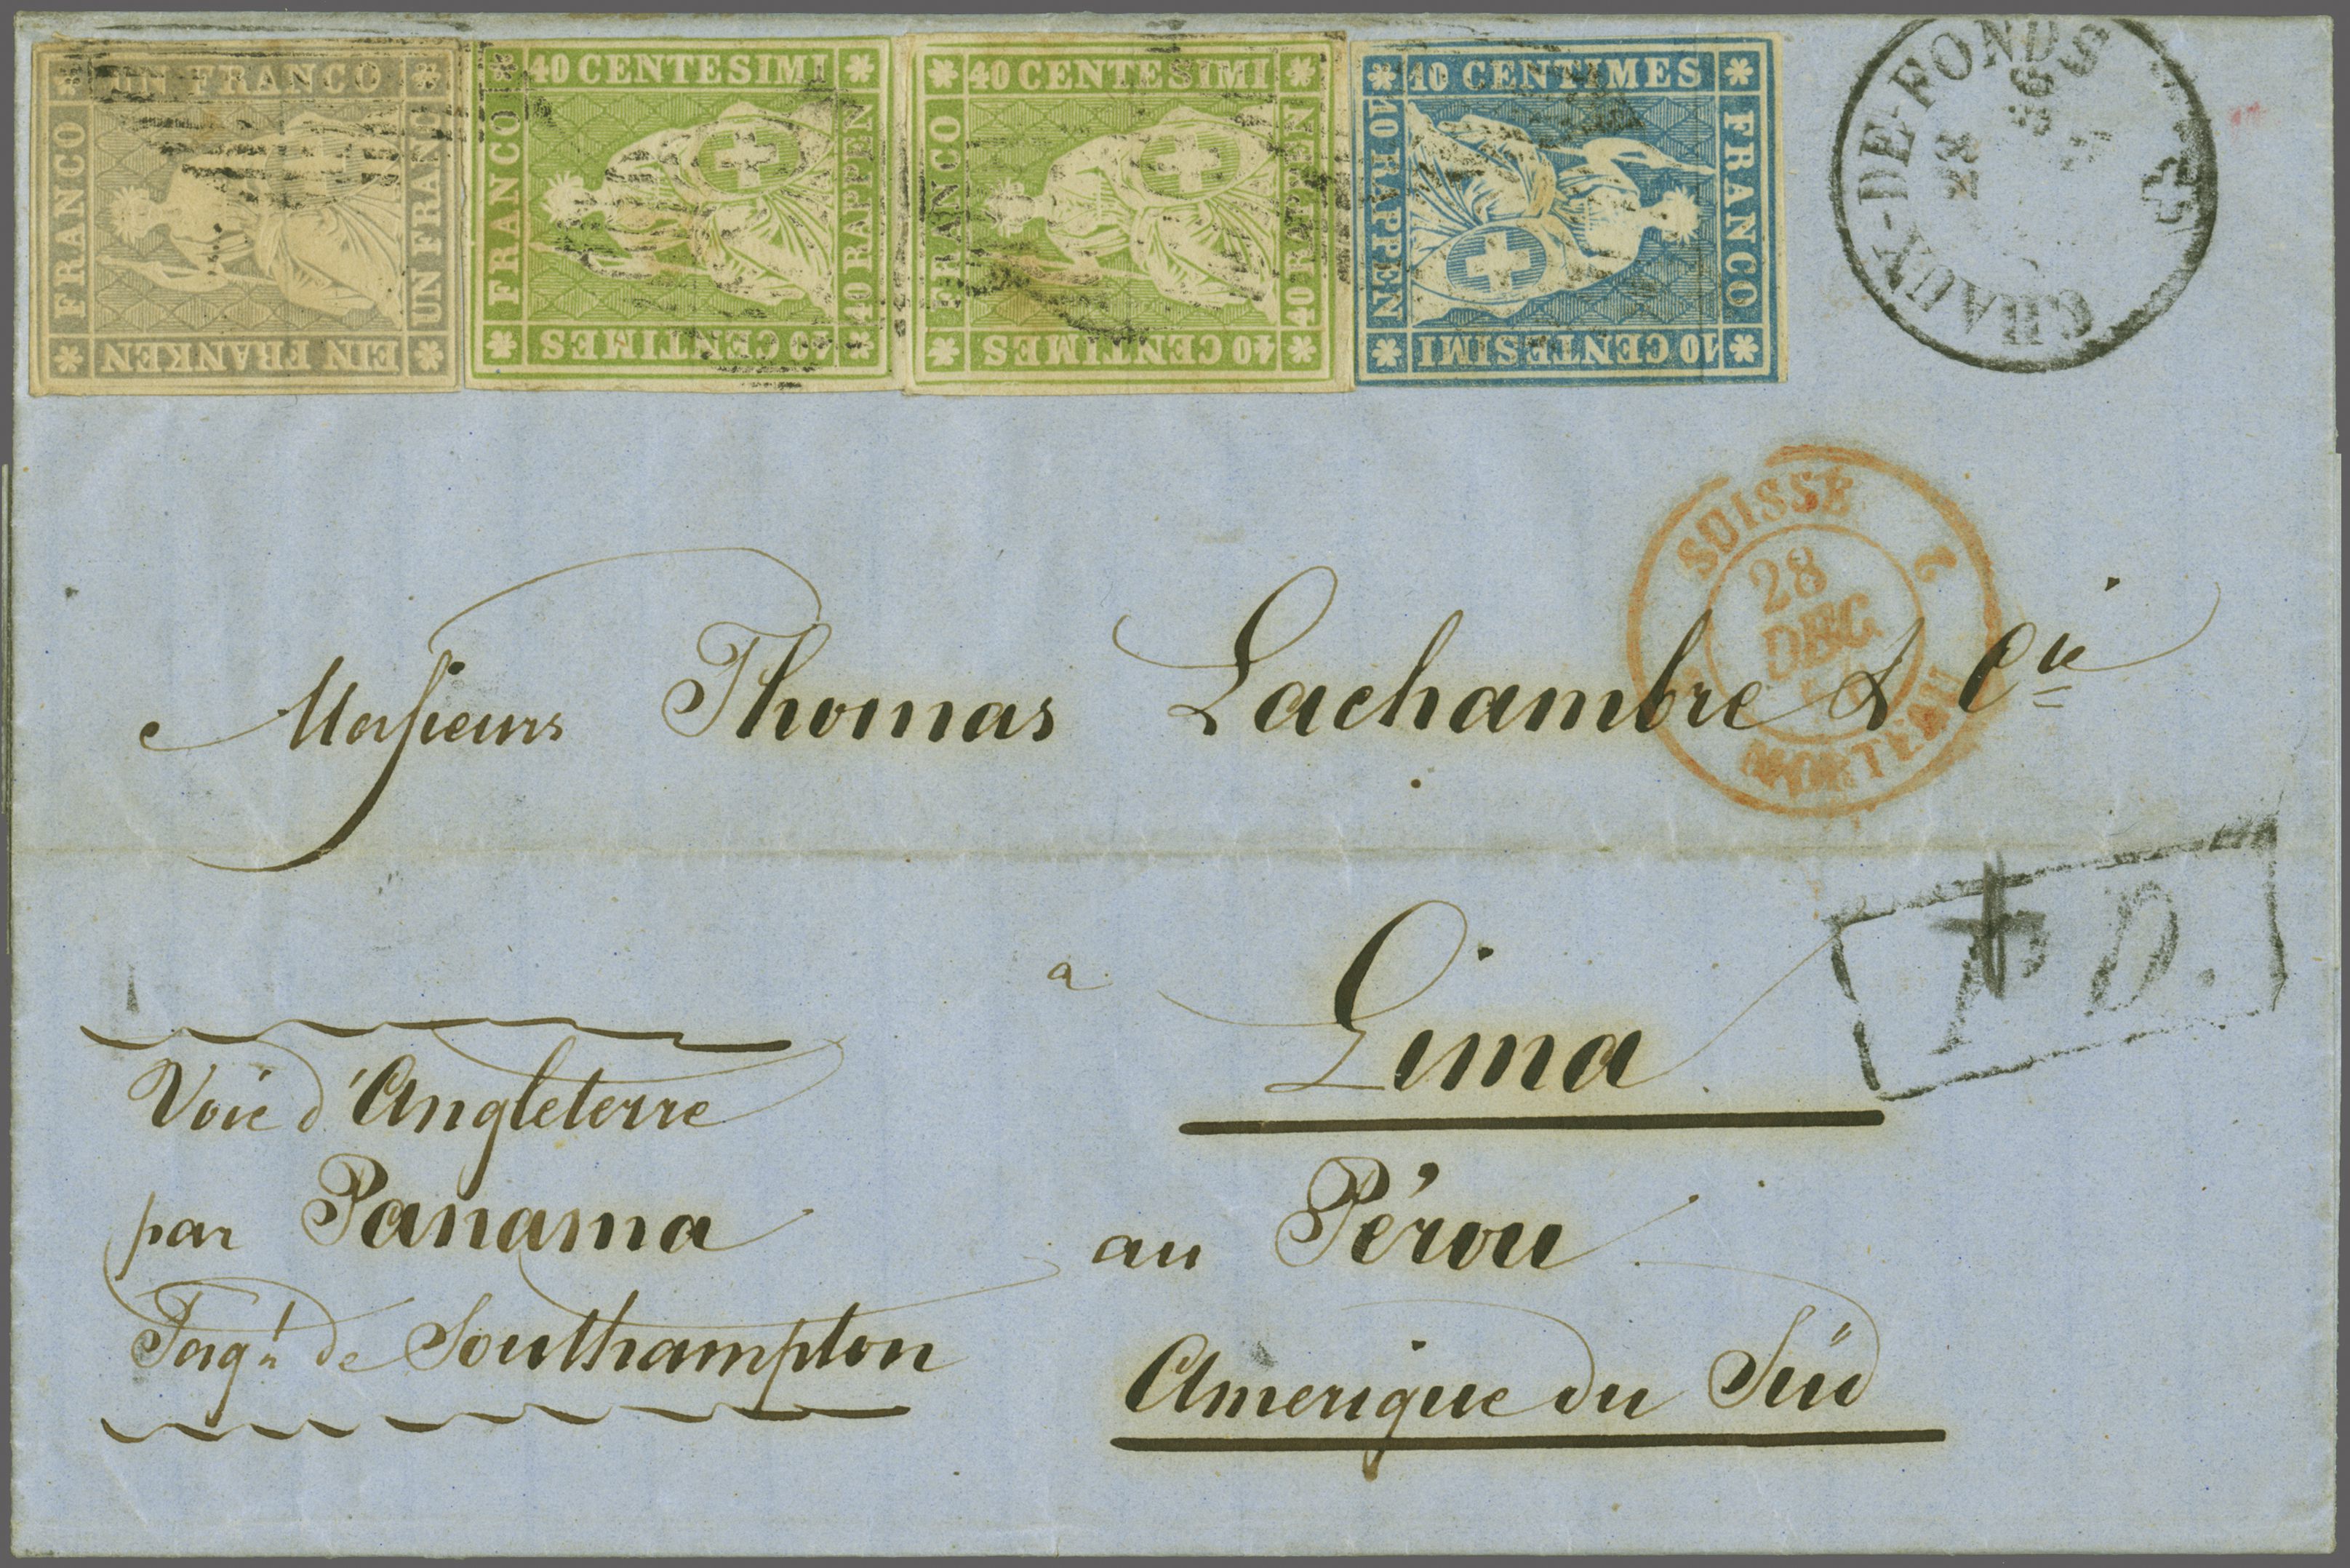 UN FRANCO
FRANCO
UN FRANC
EIN FRANKEN
40 CENTESIMI
FRANCO
40 RAPPEN
40 CENTIMES
40 CENTESIMI
FRANCO
40 RAPPEN
40 CENTIMES
10 CENTIMES
10 RAPPEN
FRANCO
10 CENTESIMI
CHAUX-DE-FONDS
SUISSE 2
28
DEC
Messieurs Thomas Lachambre & Cie
P.D.
a Lima
Voie d'Angleterre
par Panama
au Pérou
de Southampton
Amerique du Süd